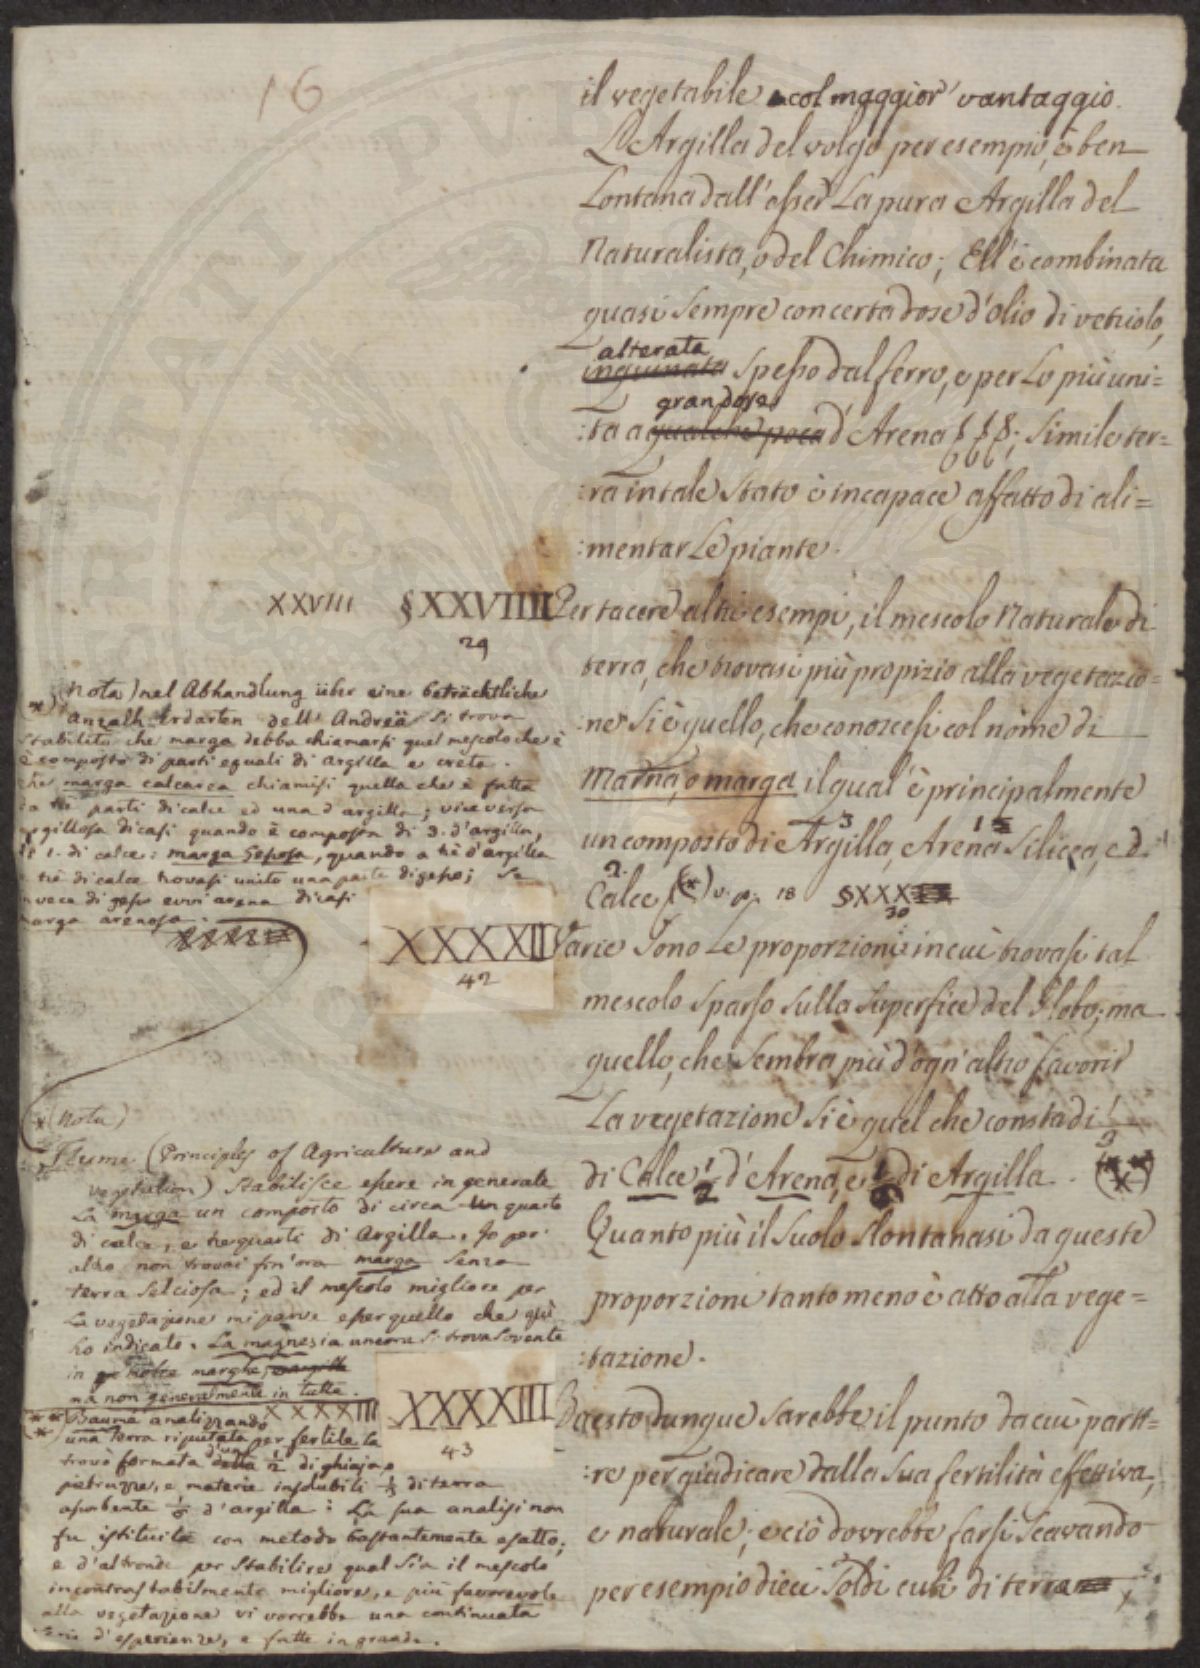 16
il vegetabile col maggior vantaggio.
L'Argilla del volgo per esempio, è ben
Lontana dall'esser La pura Argilla del
Naturalista, o del Chimico; Ell'è combinata
quasi sempre con certa dose d'olio di vetriolo,
alterata
inquinata spesso dal ferro, e per Lo più uni=
grandose
:ta a qualche poca d'Arena ; simile ter=
:ra in tale stato è incapace affatto di ali=
:mentar Le piante.
XXVIII §XXVIIII Per tacere altri esempi, il mescolo Naturale di
29
terra, che trovasi più propizio alla vegetazio=
:ne si è quello, che conoscesi col nome di
Marna, o marga il qual'è principalmente
3 1
un composto di Argilla, Arena Silicea, e di
2
Calce (*) v. p. 18 §XXX
30
XXXXII Varie sono Le proporzioni in cui trovasi tal
42
mescolo sparso sulla superfice del Globo; ma
quello, che sembra più d'ogn'altro favorir
La vegetazione si è quel che consta di
di Calce 1/2 d'Arena, e di Argilla. (***)
Quanto più il suolo slontanasi da queste
proporzioni tanto meno è atto alla vege=
:tazione.
XXXXIII Da esto dunque sarebbe il punto da cui parti=
43
:re per giudicare dalla sua fertilità effettiva,
e naturale; e ciò dovrebbe farsi scavando
per esempio dieci Soldi cubi di terra
(*) (Nota) nel Abhandlung über eine beträchtliche
Anzalh Erdarten dell' Andreä si trova
stabilito che marga debba chiamarsi quel mescolo che è
composto di parti eguali di argilla e creta.
che marga calcarea chiamisi quella che è fatta
da tre parti di calce ed una d'argilla; viceversa
argillosa dicasi quando è composta di 3. d'argilla,
di 1. di calce: marga Gessosa, quando a trè d'argilla
e trè di calce trovasi unito una parte di gesso; se
invece di gesso evvi arena dicasi
marga arenosa.
* (Nota)
Hume (Principles of Agriculture and
vegetation) stabilisce essere in generale
La marga un composto di circa un quarto
di calce, e tre quarti di Argilla. Io per
altro non trovai fin'ora marga senza
terra selciosa; ed il mescolo migliore per
La vegetazione mi parve esser quello che quì
ho indicato. La magnesia ancora si trova sovente
in molte marghe,
ma non generalmente in tutte.
(***) Baumé analizzando XXXXIII
una terra riputata per fertile la
trovò formata d'una 1/2 di ghiaja, o
pietruzze, e materie insolubili di terra
assorbente d'argilla: La sua analisi non
fu istituita con metodo bastantemente esatto;
e d'altronde per stabilire qual sia il mescolo
incontrastabilmente migliore, e più favorevole
alla vegetazione vi vorrebbe una continuata
serie d'esperienze, e fatte in grande.